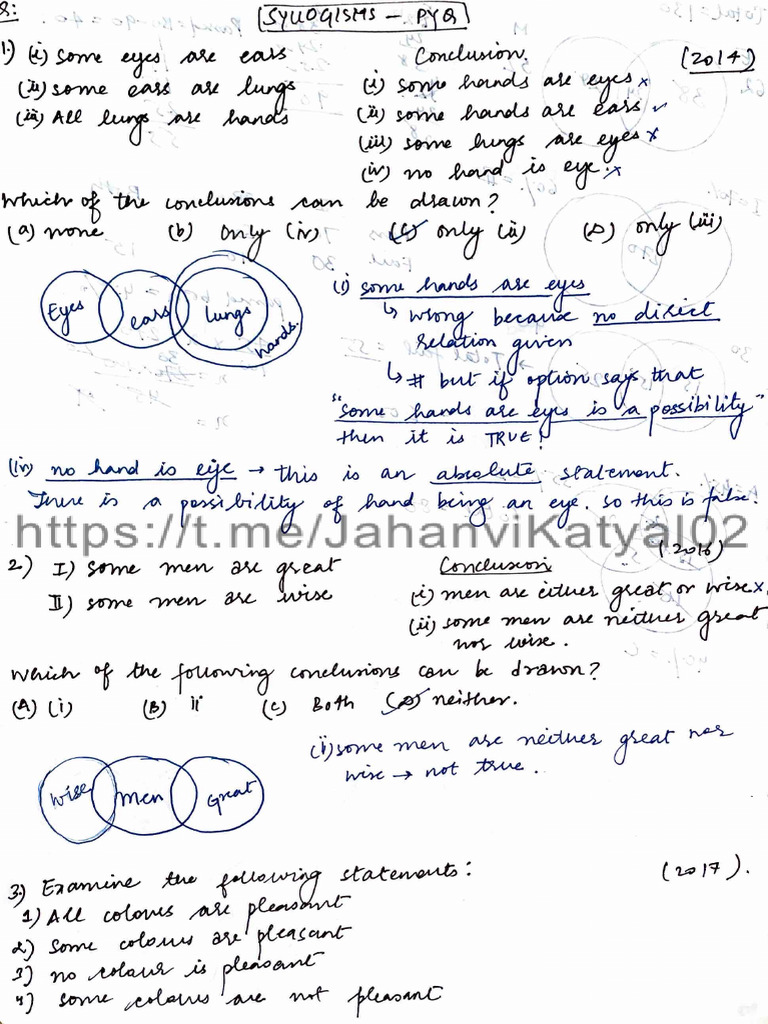 SYLLOGISMS - PYQ
1.) (i) some eyes are ears
(ii) some ears are lungs
(iii) All lungs are hands
Conclusion.
(2014)
(i) some hands are eyes x
(ii) some hands are ears ✓
(iii) some lungs are eyes x
(iv) no hand is eye. x
which of the conclusions can be drawn?
(a) none (b) only (iv) (c) only (ii) (D) only (iii)
Eyes ears lungs hands.
(i) some hands are eyes
↳ wrong because no direct
relation given
↳ # but if option says that
"some hands are eyes is a possibility"
then it is TRUE!
(iv) no hand is eye → this is an absolute statement.
There is a possibility of hand being an eye. so this is false.
https://t.me/JahanviKatyal02
(2016)
2.) I) some men are great
II) some men are wise
Conclusion
(i) men are either great or wise x
(ii) some men are neither great
nor wise.
which of the following conclusions can be drawn?
(A) (i) (B) ii (C) Both (D) neither.
wise men Great
(ii) some men are neither great nor
wise → not true.
3.) Examine the following statements: (2017).
1) All colours are pleasant
2) some colours are pleasant
3) no colour is pleasant
4) some colours are not pleasant